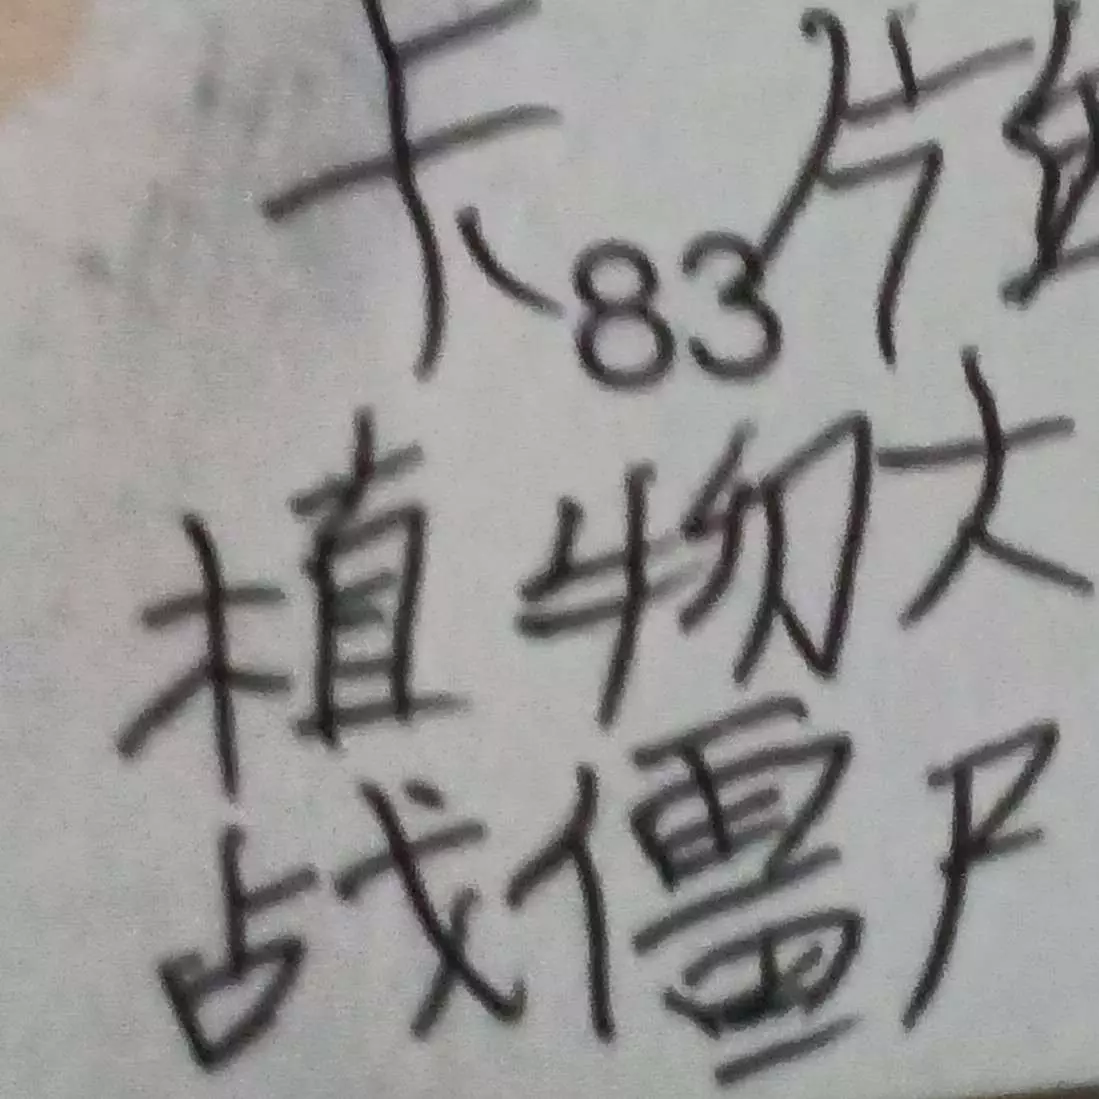 卡片
83
植物大
战僵尸